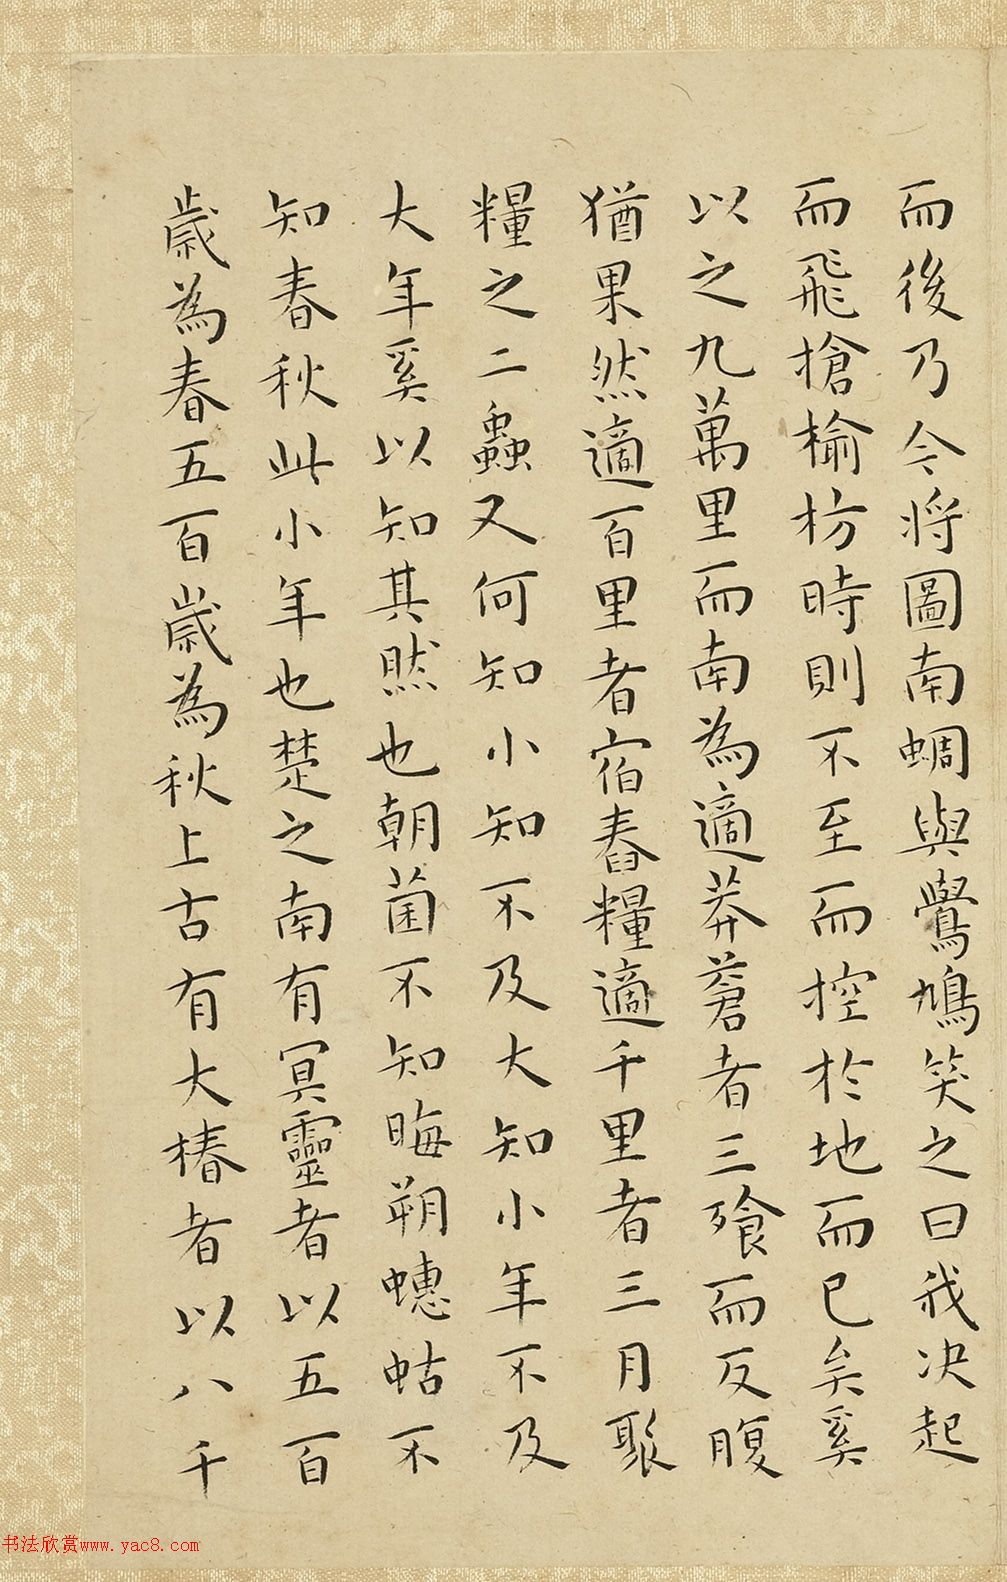 而後乃今將圖南蜩與鷽鳩笑之曰我决起
而飛搶榆枋時則不至而控於地而已矣奚
以之九萬里而南為適莽蒼者三飱而反腹
猶果然適百里者宿舂糧適千里者三月聚
糧之二蟲又何知小知不及大知小年不及
大年奚以知其然也朝菌不知晦朔蟪蛄不
知春秋此小年也楚之南有冥靈者以五百
歲為春五百歲為秋上古有大椿者以八千
书法欣赏www.yac8.com